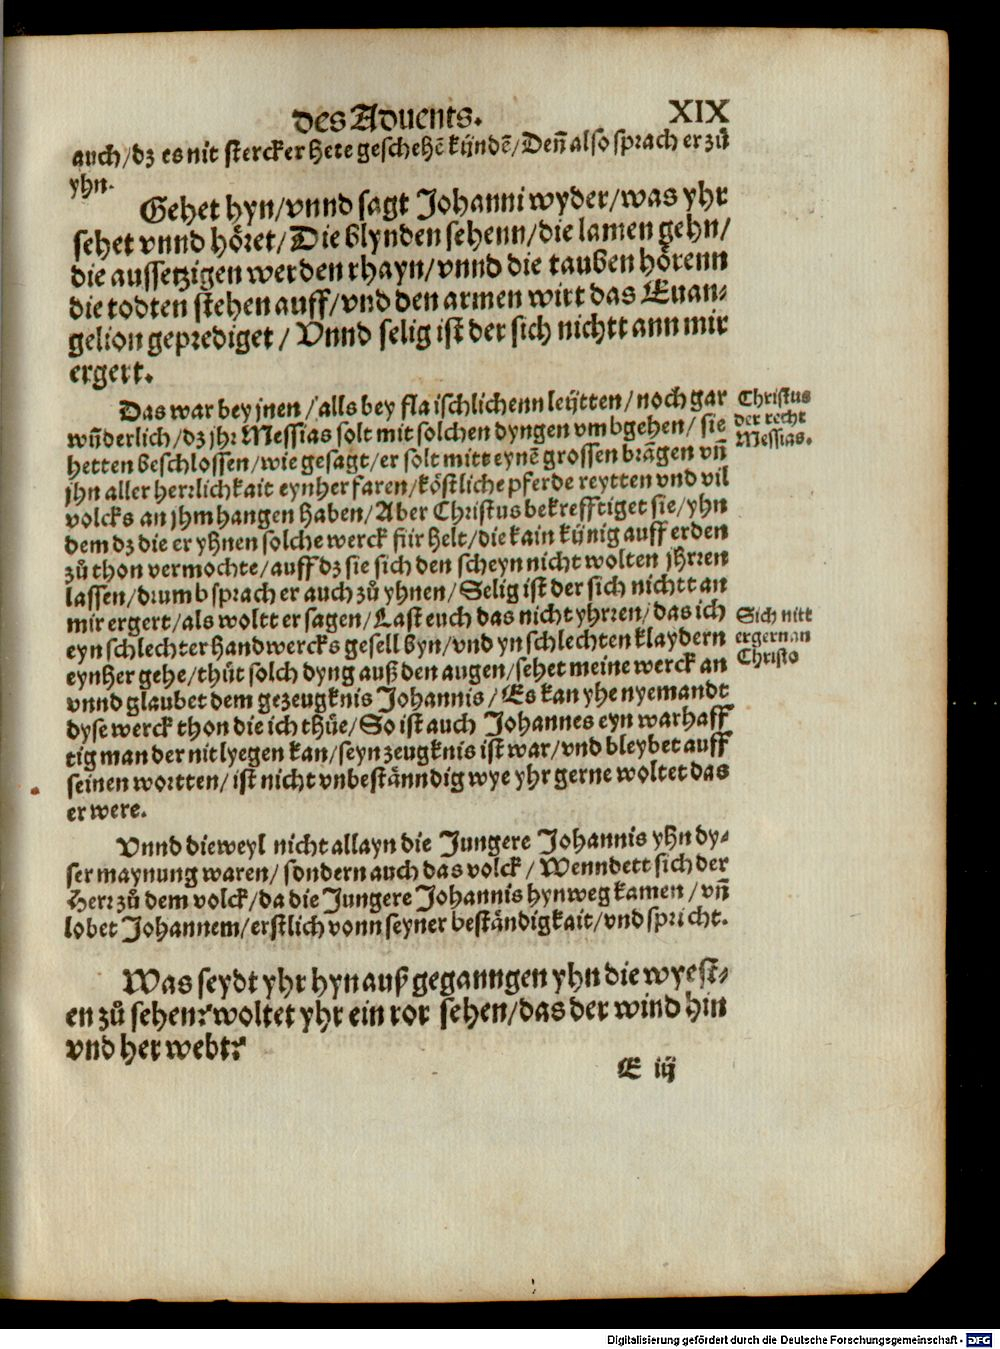 des Aduents. XIX
auch/dz es nit stercker hete geschehẽ kündẽ/Deñ also sprach er zů
yhn.
Gehet hyn/vnnd sagt Johanni wyder/was yhr
sehet vnnd höret/Die blynden sehenn/die lamen gehn/
die aussetzigen werden rhayn/vnnd die tauben hörenn
die todten stehen auff/vnd den armen wirt das Euan⸗
gelion geprediget/Vnnd selig ist der sich nichtt ann mir
ergert.
Das war bey jnen/alls bey flaischlichenn leÿtten/noch gar
wũderlich/dz jhr Messias solt mit solchen dyngen vmbgehen/sie
hetten beschlossen/wie gesagt/er solt mitt eynẽ grossen brãgen vñ
jhn aller herrlichkait eynher faren/köstliche pferde reytten vnd vil
volcks an jhm hangen haben/Aber Christus bekrefftiget sie/yhn
dem dz die er yhnen solche werck für helt/die kain künig auff erden
zů thon vermochte/auff dz sie sich den scheyn nicht wolten jhrren
lassen/drumb sprach er auch zů yhnen/Selig ist der sich nichtt an
mir ergert/als woltt er sagen/Last euch das nicht yhrren/das ich
eyn schlechter handwercks gesell byn/vnd yn schlechten klaydern
eynher gehe/thůt solch dyng auß den augen/sehet meine werck an
vnnd glaubet dem gezeugknis Johannis/Es kan yhe nyemandt
dyse werck thon die ich thůe/So ist auch Johannes eyn warhaff
tig man der nit lyegen kan/seyn zeugknis ist war/vnd bleybet auff
seinen wortten/ist nicht vnbestänndig wye yhr gerne woltet das
er were.
Christus
der recht
Messias.
Sich nitt
ergern an
Christo
Vnnd dieweyl nicht allayn die Jungere Johannis yhn dy⸗
ser maynung waren/sondern auch das volck/Wenndett sich der
Herr zů dem volck/da die Jungere Johannis hynweg kamen/vñ
lobet Johannem/erstlich vonn seyner beständigkait/vnd spricht.
Was seydt yhr hynauß geganngen yhn die wyest⸗
en zů sehen?woltet yhr ein ror sehen/das der wind hin
vnd her webt?
E iij
Digitalisierung gefördert durch die Deutsche Forschungsgemeinschaft - DFG